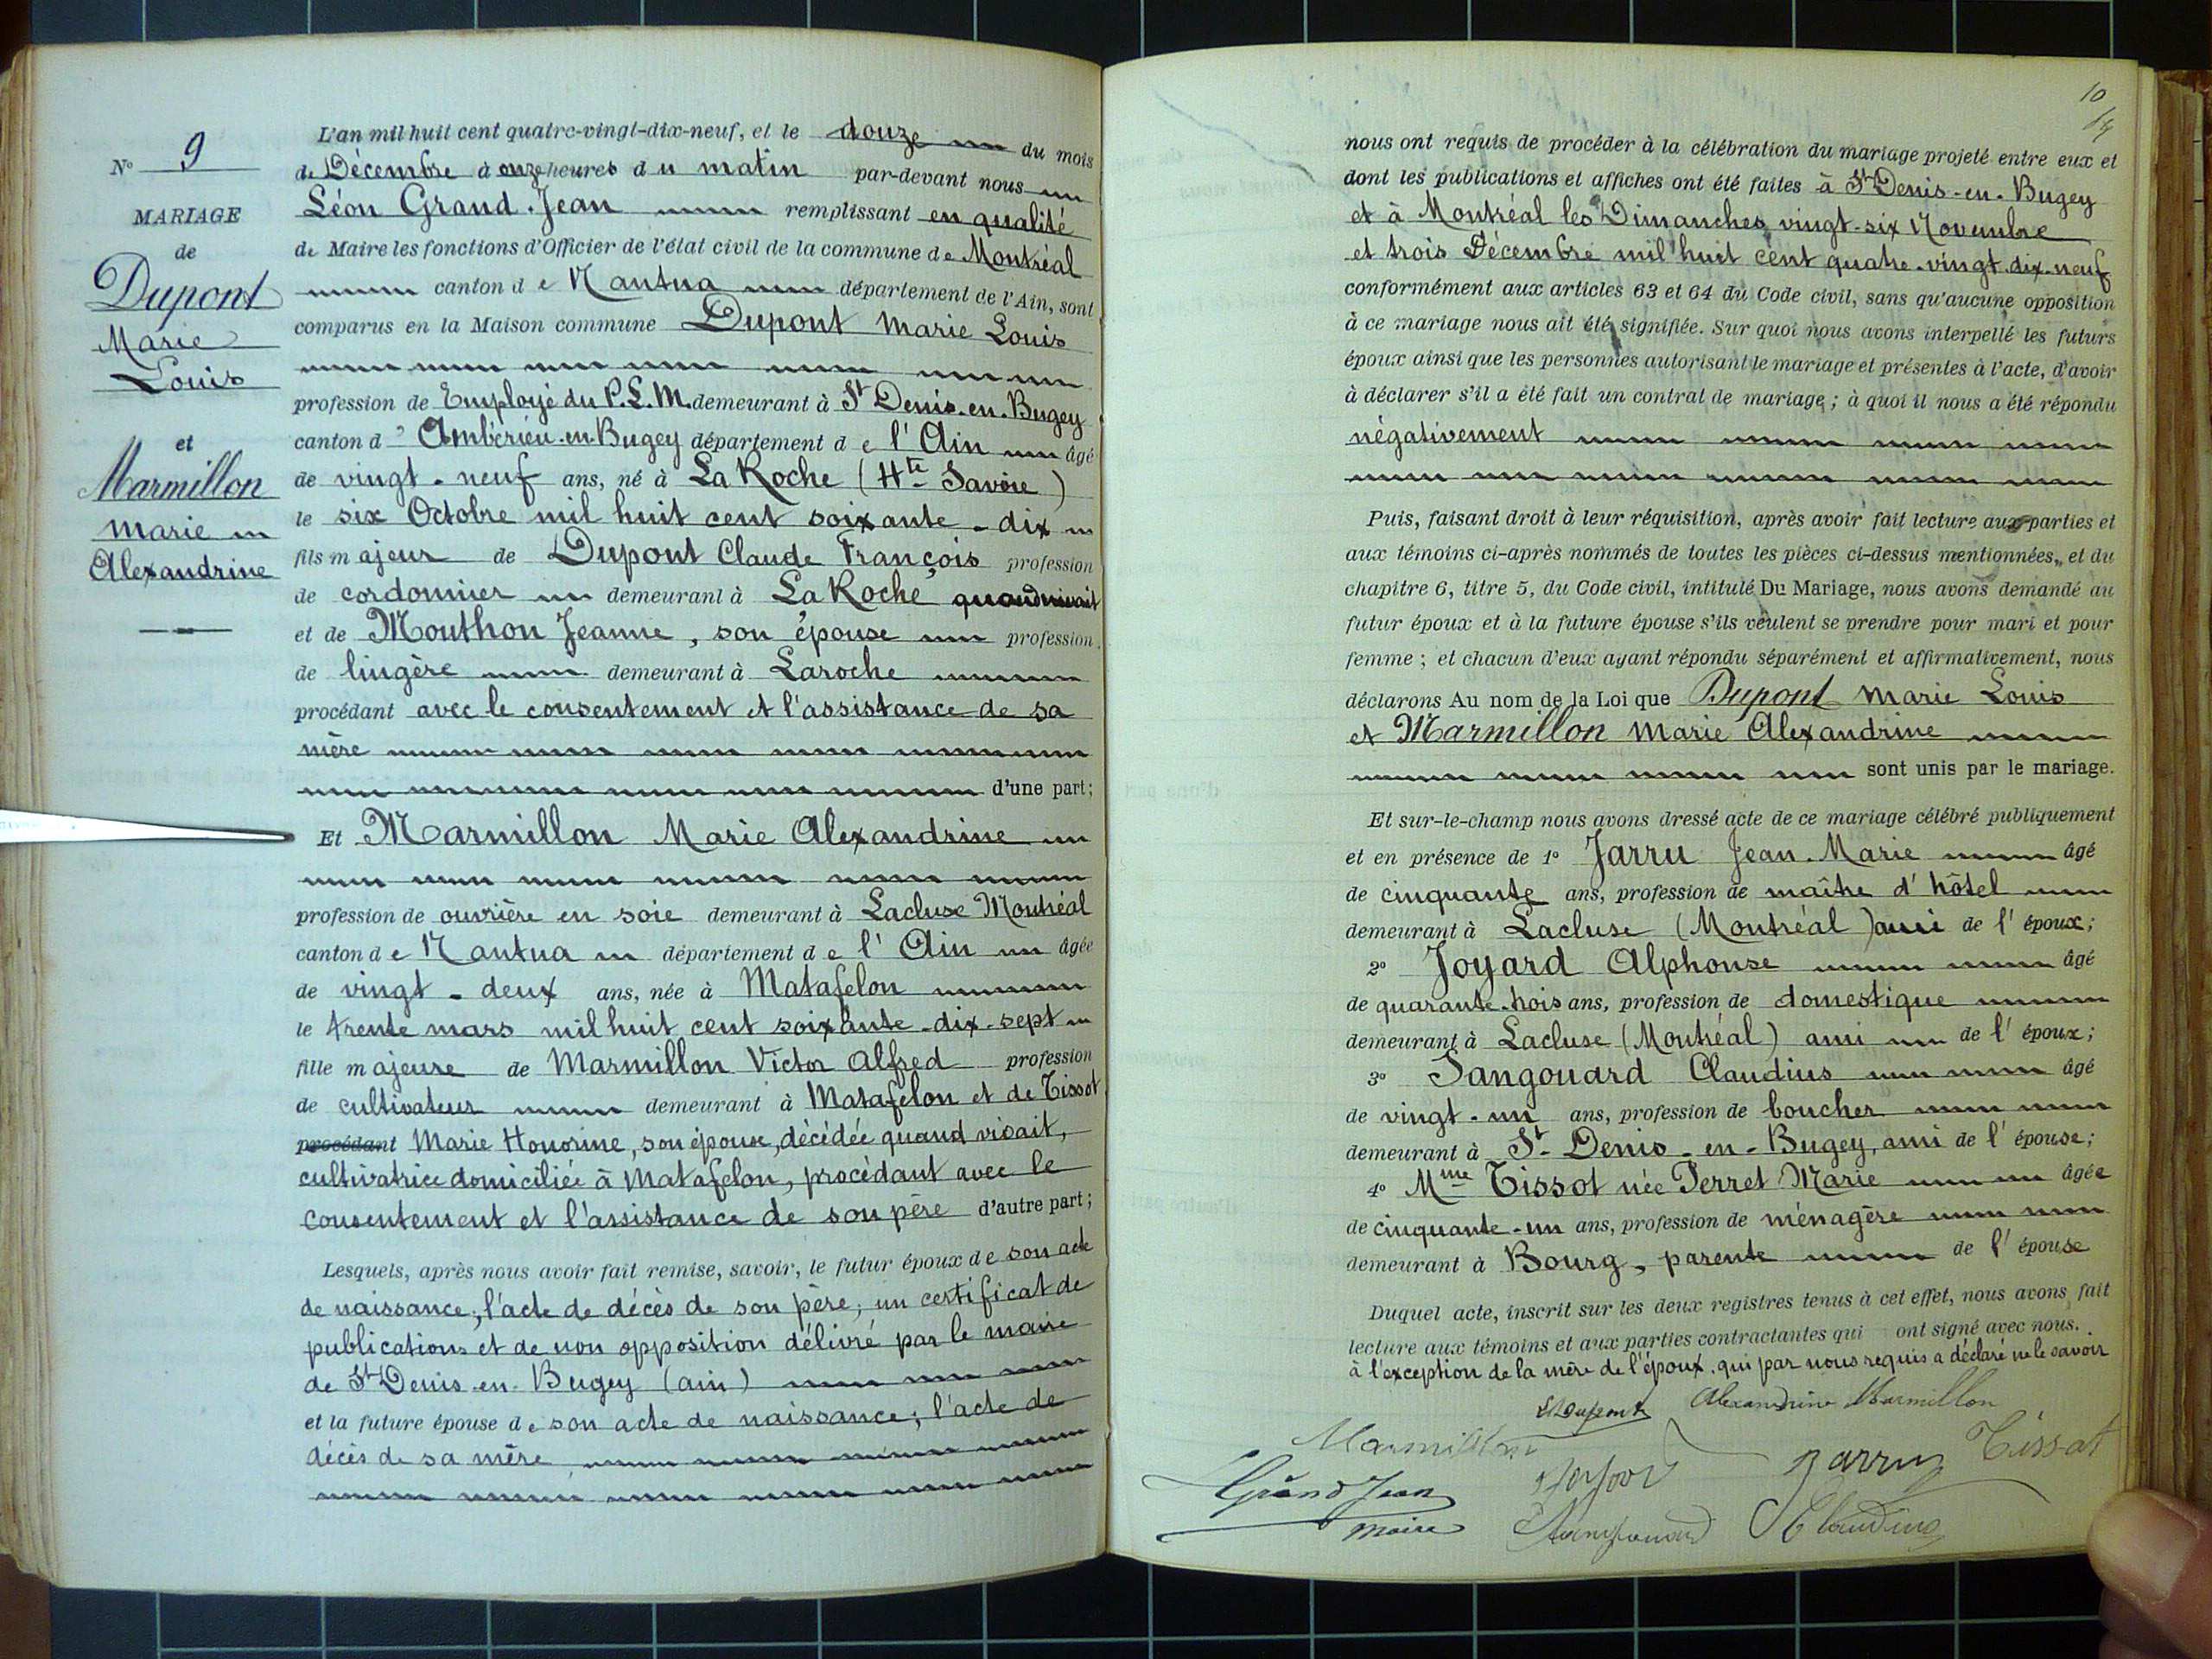 N° 9
MARIAGE
de
Dupont
Marie
Louis
et
Marmillon
Marie
Alexandrine
L'an mil huit cent quatre-vingt-dix-neuf, et le douze du mois
de Décembre à onze heures du matin par-devant nous
Léon Grand-Jean remplissant en qualité
de Maire les fonctions d'Officier de l'état civil de la commune de Montréal
canton de Nantua département de l'Ain, sont
comparus en la Maison commune Dupont Marie Louis
profession de Employé du P.L.M. demeurant à St Denis-en-Bugey
canton d'Ambérieu-en-Bugey département de l'Ain âgé
de vingt-neuf ans, né à La Roche (Hte Savoie)
le six Octobre mil huit cent soixante-dix
fils majeur de Dupont Claude François profession
de cordonnier demeurant à La Roche quand vivait
et de Mouthon Jeanne, son épouse profession
de lingère demeurant à Laroche
procédant avec le consentement et l'assistance de sa
mère
d'une part;
Et Marmillon Marie Alexandrine
profession de ouvrière en soie demeurant à Lacluse Montréal
canton de Nantua département de l'Ain âgée
de vingt-deux ans, née à Matafelon
le trente mars mil huit cent soixante-dix-sept
fille majeure de Marmillon Victor Alfred profession
de cultivateur demeurant à Matafelon et de Tissot
procédant Marie Honorine, son épouse, décédée quand vivait,
cultivatrice domiciliée à Matafelon, procédant avec le
consentement et l'assistance de son père d'autre part;
Lesquels, après nous avoir fait remise, savoir, le futur époux de son acte
de naissance; l'acte de décès de son père; un certificat de
publications et de non opposition délivré par le maire
de St Denis-en-Bugey (ain)
et la future épouse de son acte de naissance; l'acte de
décès de sa mère
10
nous ont requis de procéder à la célébration du mariage projeté entre eux et
dont les publications et affiches ont été faites à St Denis-en-Bugey
et à Montréal les Dimanches vingt-six Novembre
et trois Décembre mil huit cent quatre-vingt-dix-neuf
conformément aux articles 63 et 64 du Code civil, sans qu'aucune opposition
à ce mariage nous ait été signifiée. Sur quoi nous avons interpellé les futurs
époux ainsi que les personnes autorisant le mariage et présentes à l'acte, d'avoir
à déclarer s'il a été fait un contrat de mariage; à quoi il nous a été répondu
négativement
Puis, faisant droit à leur réquisition, après avoir fait lecture aux parties et
aux témoins ci-après nommés de toutes les pièces ci-dessus mentionnées, et du
chapitre 6, titre 5, du Code civil, intitulé Du Mariage, nous avons demandé au
futur époux et à la future épouse s'ils veulent se prendre pour mari et pour
femme; et chacun d'eux ayant répondu séparément et affirmativement, nous
déclarons Au nom de la Loi que Dupont Marie Louis
et Marmillon Marie Alexandrine
sont unis par le mariage.
Et sur-le-champ nous avons dressé acte de ce mariage célébré publiquement
et en présence de 1° Jarru Jean-Marie âgé
de cinquante ans, profession de maître d'hôtel
demeurant à Lacluse (Montréal) ami de l'époux;
2° Joyard Alphonse âgé
de quarante-trois ans, profession de domestique
demeurant à Lacluse (Montréal) ami de l'époux;
3° Sangouard Claudius âgé
de vingt-un ans, profession de boucher
demeurant à St Denis-en-Bugey, ami de l'épouse;
4° Mme Tissot née Perret Marie âgée
de cinquante-un ans, profession de ménagère
demeurant à Bourg, parente de l'épouse
Duquel acte, inscrit sur les deux registres tenus à cet effet, nous avons fait
lecture aux témoins et aux parties contractantes qui ont signé avec nous.
à l'exception de la mère de l'époux qui par nous requis a déclaré ne le savoir
Dupont Alexandrine Marmillon
Marmillon Jarru Tissot
Grand Jean
maire Sangouard Claudius